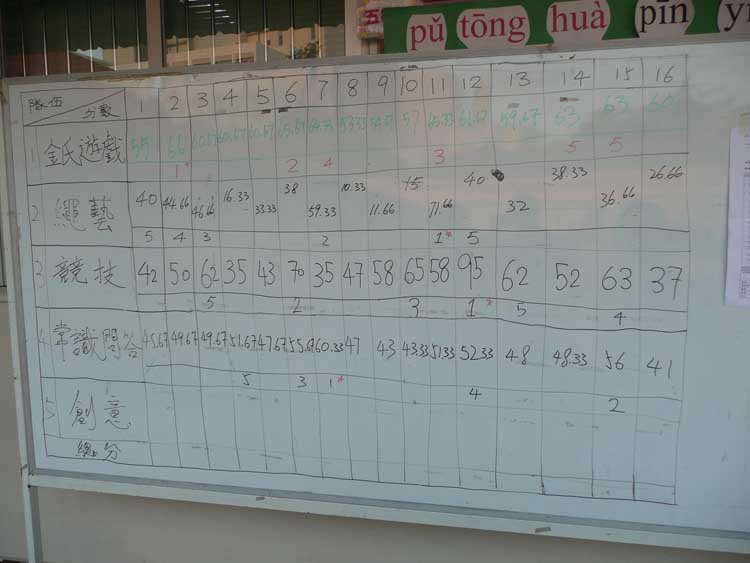 pǔ tōng huà pīn y
隊伍 分數 1 2 3 4 5 6 7 8 9 10 11 12 13 14 15 16
1 金氏遊戲 55 66 60.67 60.67 60.67 65.67 64.33 53.33 54.67 57 65.33 59.67 63 63 60
1* 2 4 3 5 5
2 繩藝 40 44.66 46.66 16.33 33.33 38 59.33 10.33 11.66 15 71.66 40 32 38.33 36.66 26.66
5 4 3 2 1* 5
3 競技 42 50 62 35 43 70 35 47 58 65 58 95 62 52 63 37
5 2 3 1* 5 4
4 常識問答 45.67 49.67 49.67 51.67 47.67 55.67 60.33 47 43 43.33 51.33 52.33 48 48.33 56 41
5 3 1* 4 2
5 創意
總分